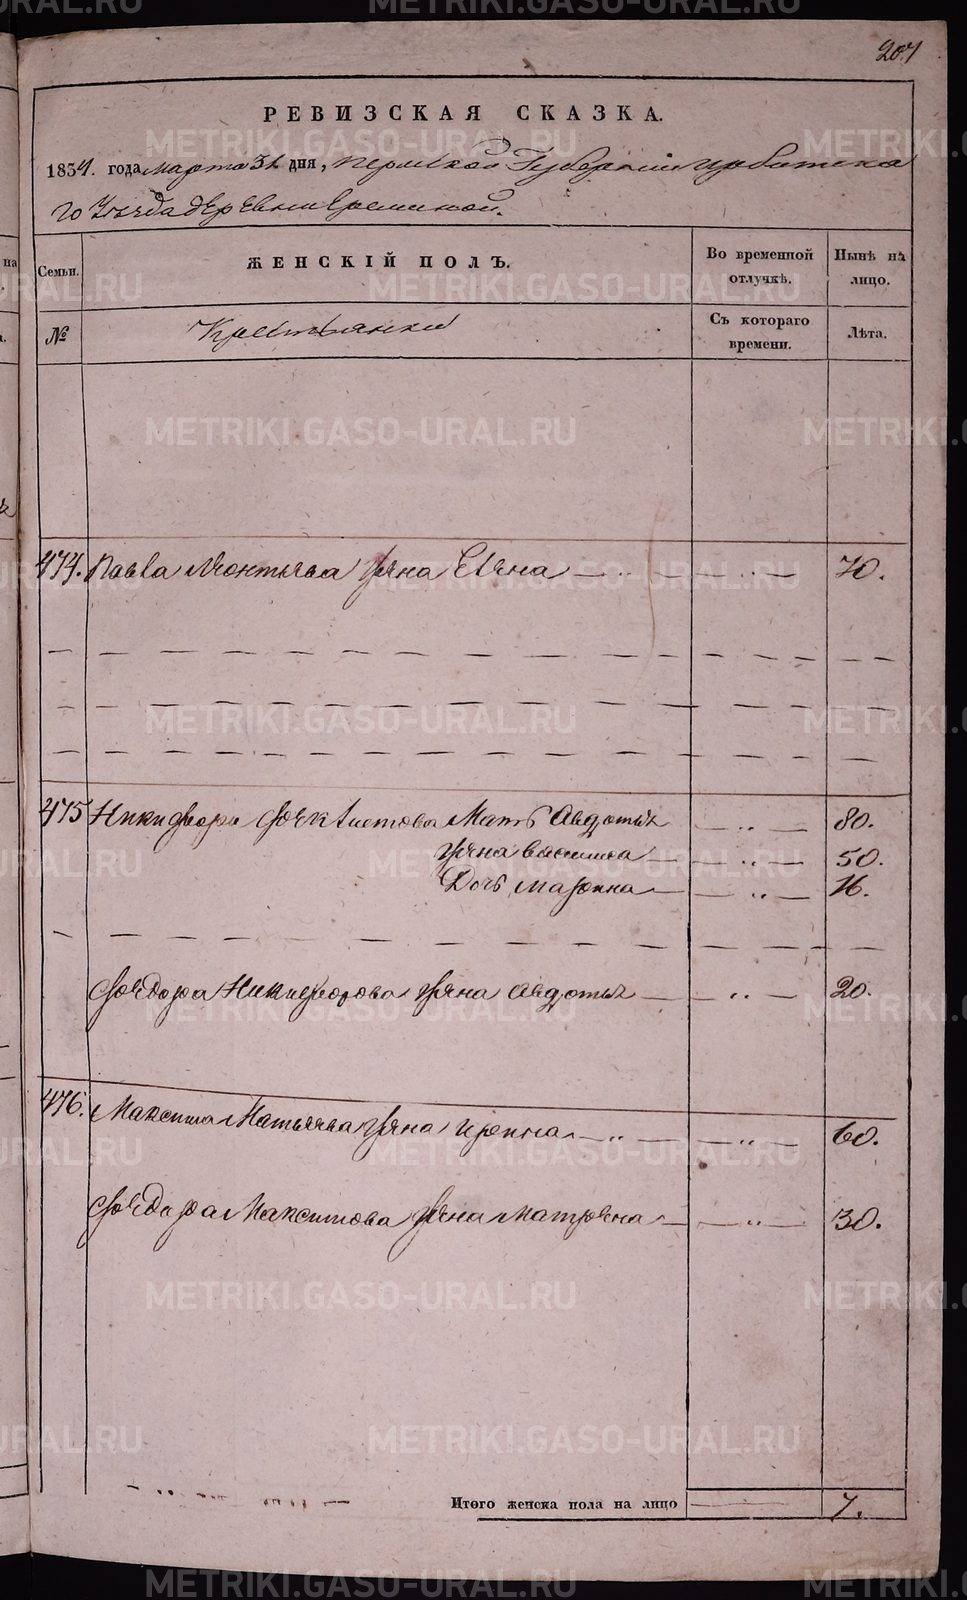 207
РЕВИЗСКАЯ СКАЗКА.
1834. года марта 31 дня, Пермской Губернии Ирбитска
го Уезда деревни Ереминой.
Семьи. ЖЕНСКІЙ ПОЛЪ. Во временной отлучкѣ. Нынѣ на лицо.
№ Крестьянки Съ котораго времени. Лѣта.
474. Павла Леонтьева жена 70.
475 Никифора Мать Авдотья 80.
жена Василиса 50.
Дочь Марина 16.
Федора Никифорова жена Авдотья 20.
476. Максима Матвеева жена Ирина 60.
Федора Максимова жена Матрена 30.
Итого женска пола на лицо 7.
METRIKI.GASO-URAL.RU